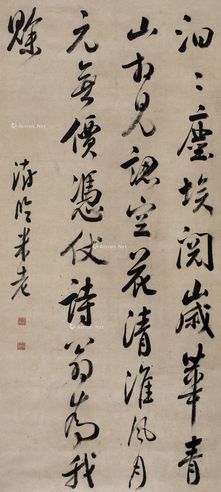 汩〻塵埃閱歲華青
山見認空花清淮風月
元無價憑仗詩翁為我
賒
臨米老
Artron.Net